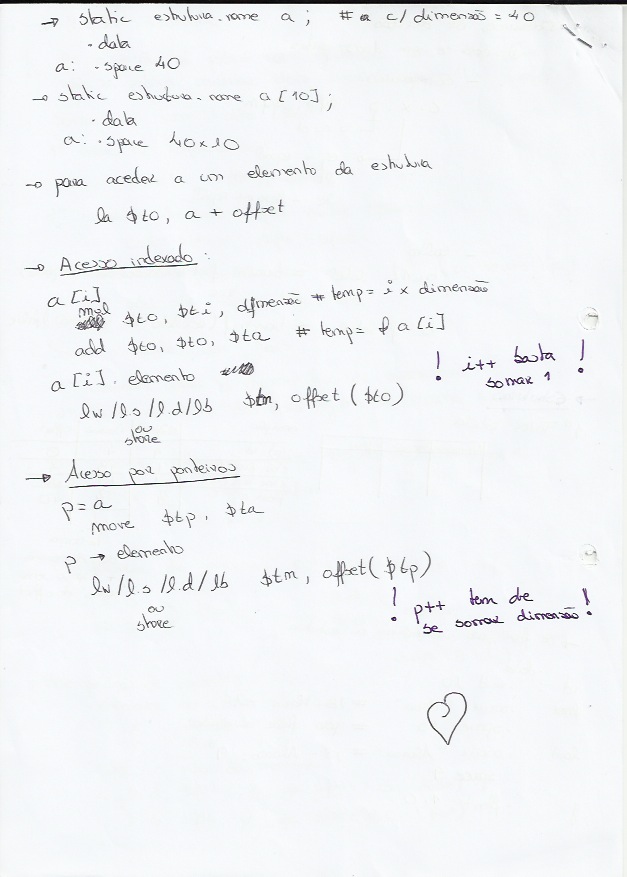 → static estrutura.name a ; # a c/ dimensão = 40
.data
a: .space 40
→ static estrutura.name a [10] ;
.data
a: .space 40x10
→ para aceder a um elemento da estrutura
la $t0, a + offset
→ Acesso indexado :
a [i]
mul $t0, $ti, dimensão # temp = i x dimensão
add $t0, $t0, $ta # temp = & a [i]
a [i]. elemento
! i++ basta somar 1 !
lw / l.s / l.d / lb $tn, offset ($t0)
ou
store
→ Acesso por ponteiros
p = a
move $tp, $ta
p → elemento
lw / l.s / l.d / lb $tn, offset ($tp)
ou
store
! p++ tem de
se somar dimensão !